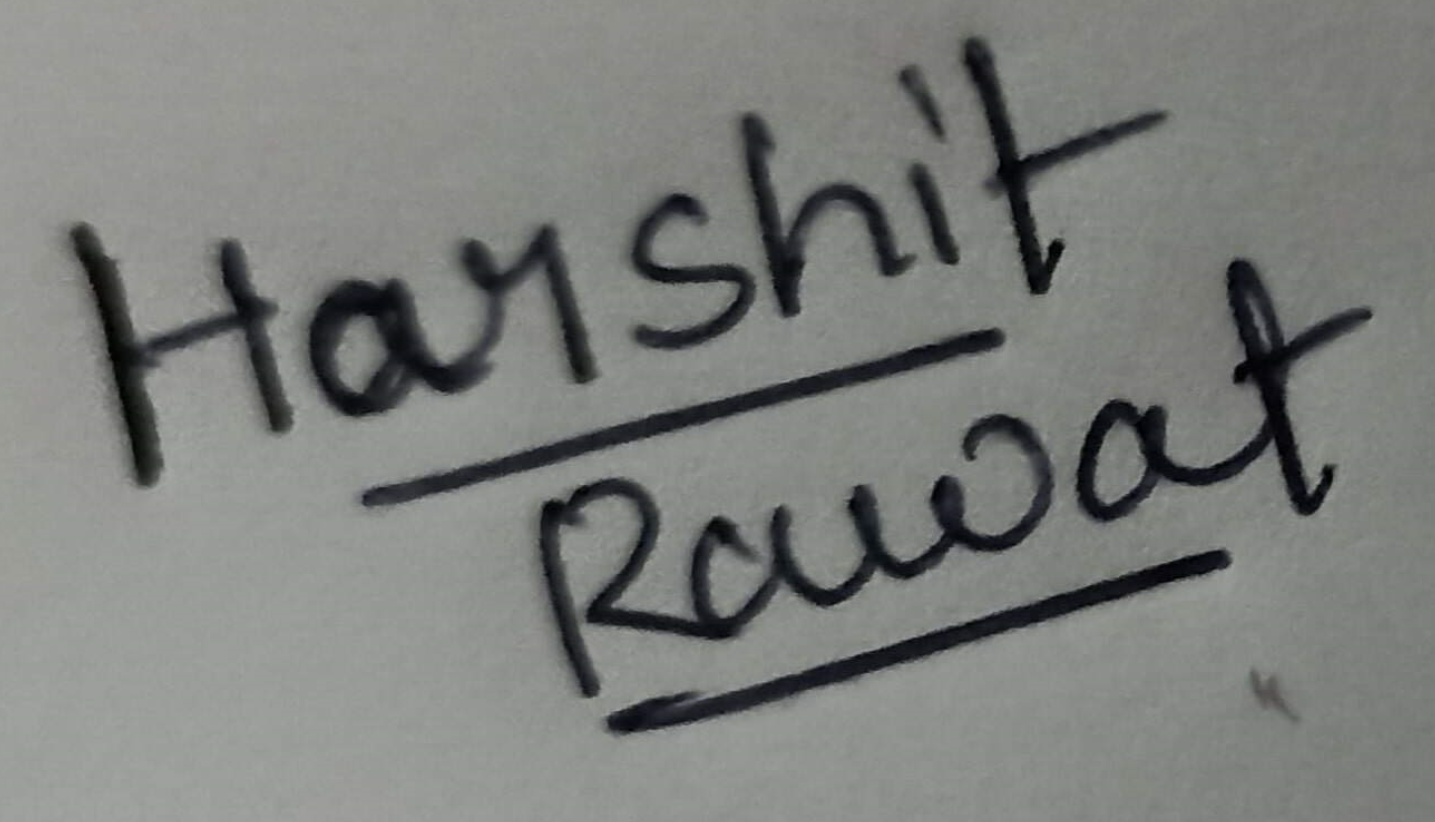 Harshit
Rawat